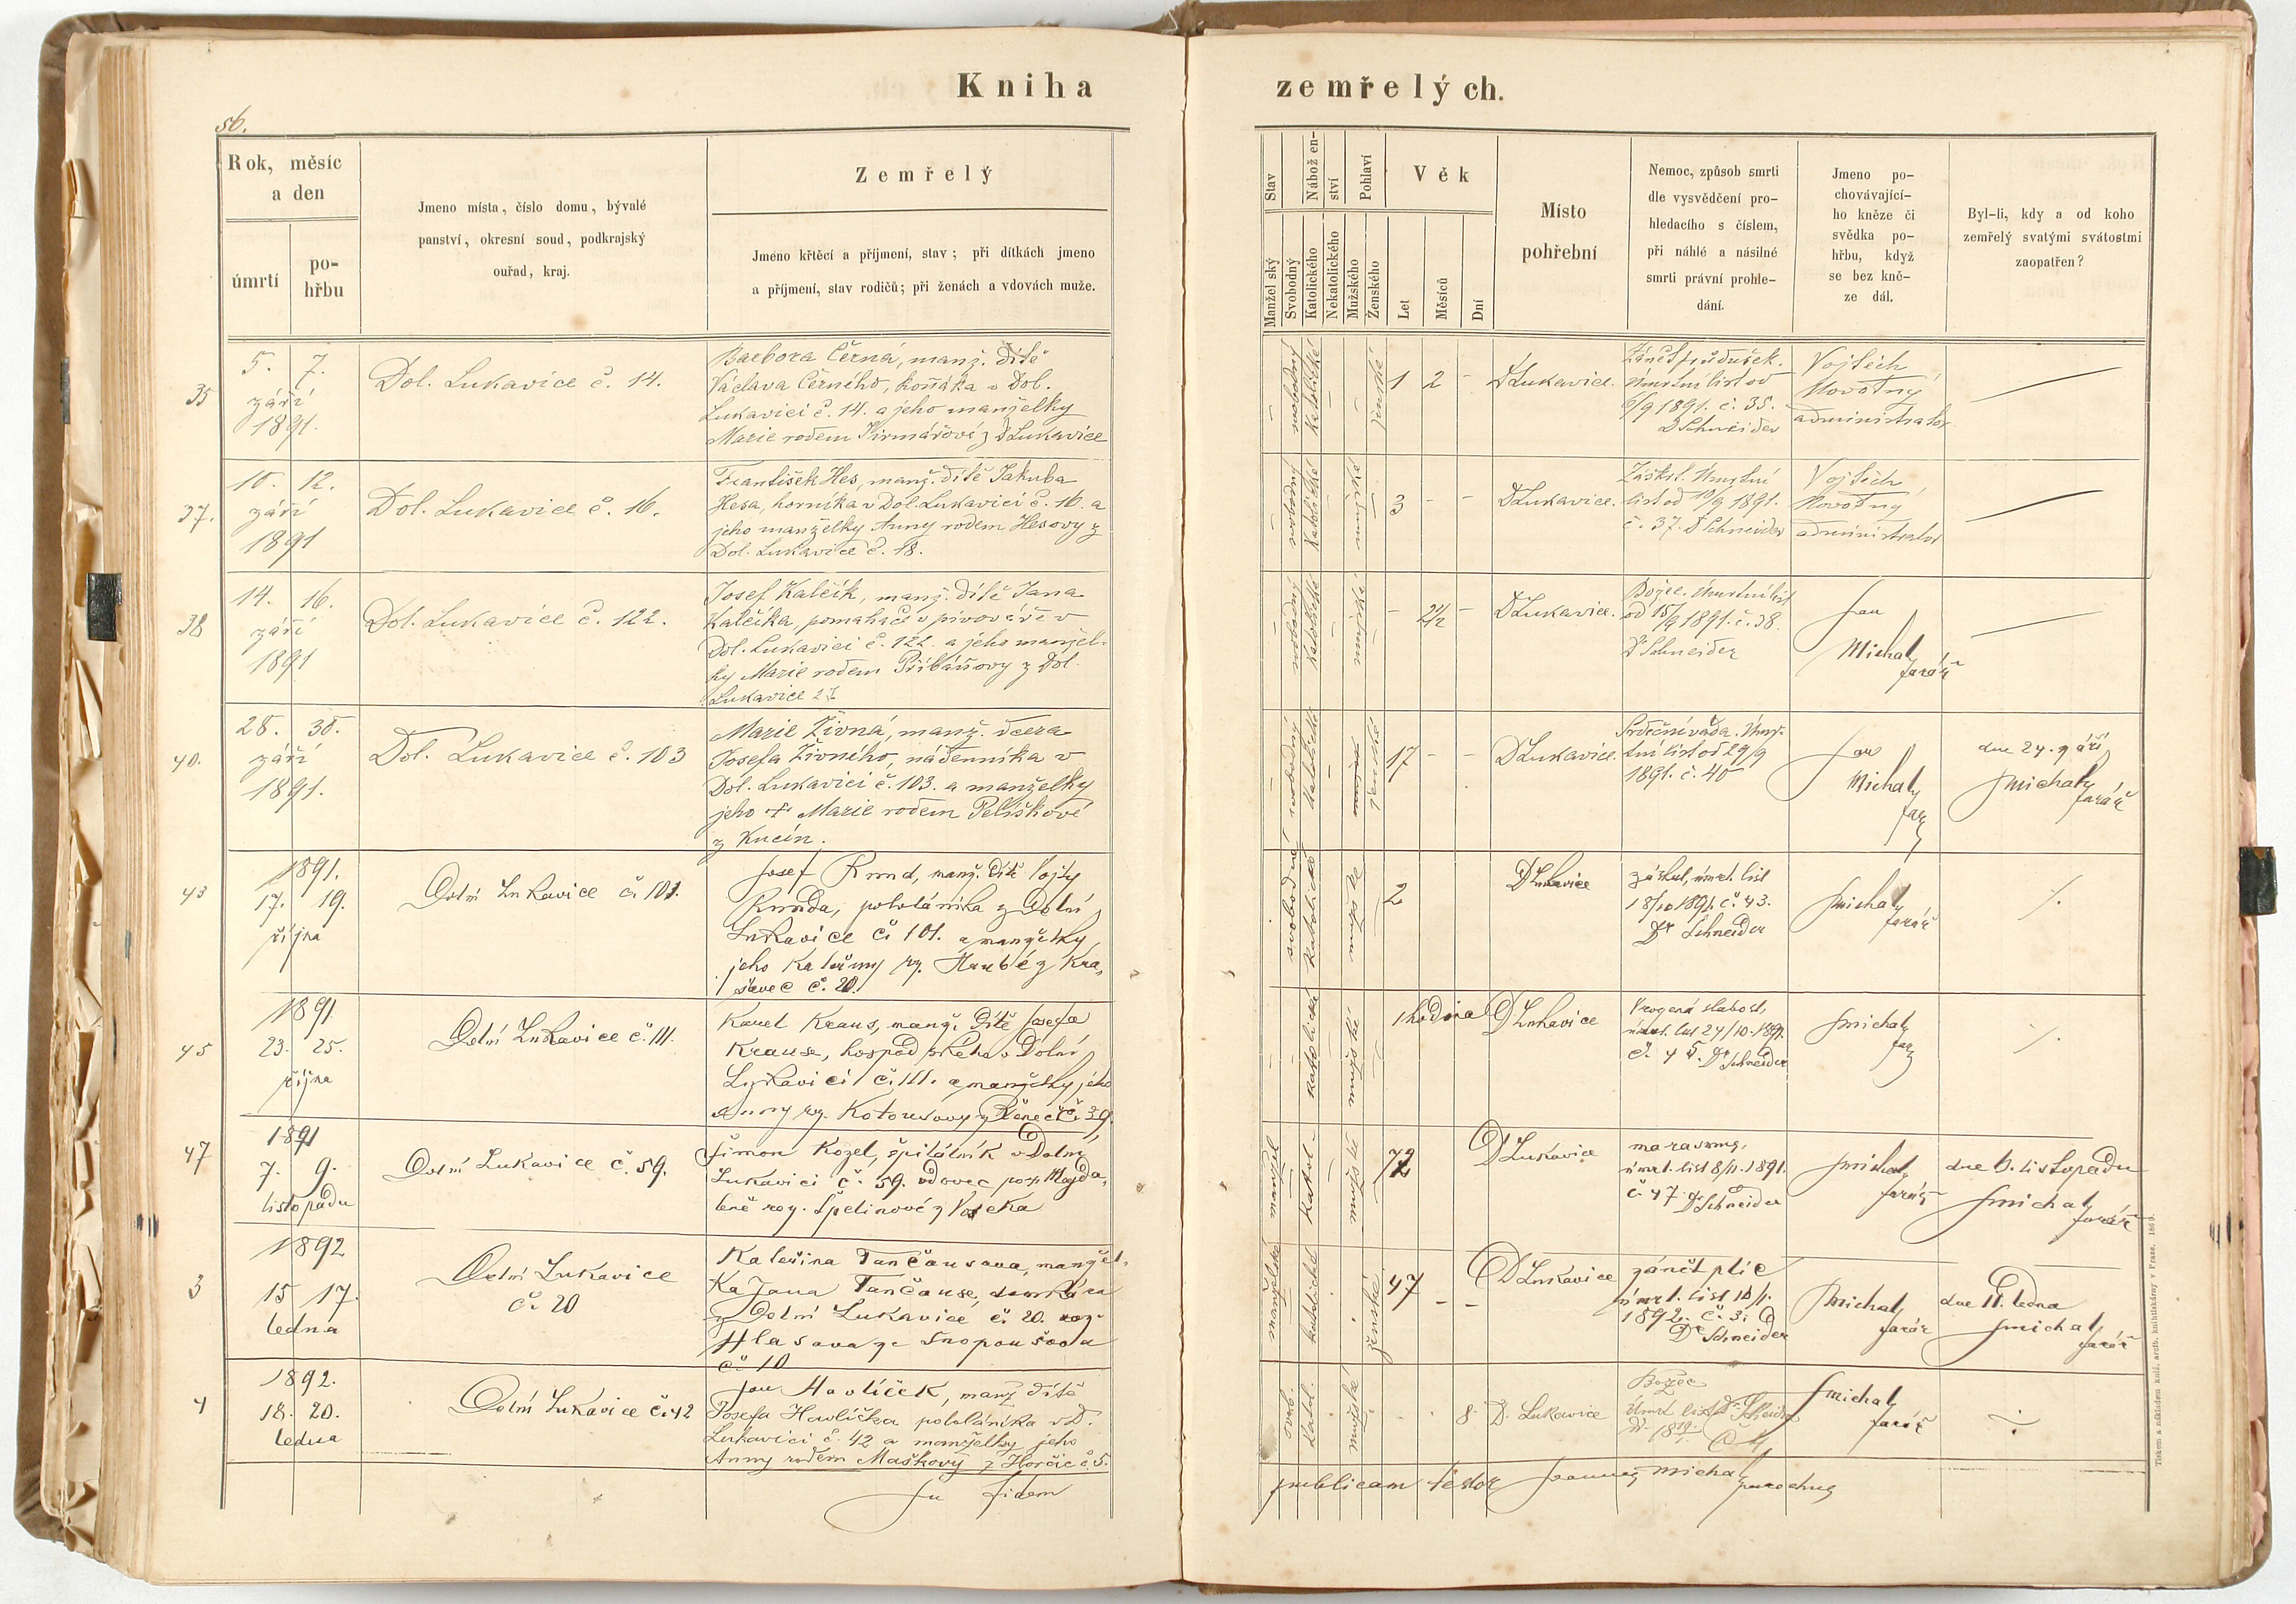 Kniha zemřelých.
56.
Rok, měsíc
a den
úmrtí
po-
hřbu
Jmeno místa, číslo domu, bývalé
panství, okresní soud, podkrajský
ouřad, kraj.
Zemřelý
Jmeno křtěcí a příjmení, stav; při dítkách jmeno
a příjmení, stav rodičů; při ženách a vdovách muže.
Stav
Manžel ský
Svobodný
Nábožen-
ství
Katolického
Nekatolického
Pohlaví
Mužského
Ženského
Věk
Let
Měsíců
Dní
Místo
pohřební
Nemoc, způsob smrti
dle vysvědčení pro-
hledacího s číslem,
při náhlé a násilné
smrti právní prohle-
dání.
Jmeno po-
chovávající-
ho kněze či
svědka po-
hřbu, když
se bez kně-
ze dál.
Byl-li, kdy a od koho
zemřelý svatými svátostmi
zaopatřen?
35
5. 7.
září
1891.
Dol. Lukavice č. 14.
Barbora Černá, manž. dítě
Václava Černého, koňáka v Dol.
Lukavici č. 14. a jeho manželky
Marie rodem z D Lukavice
svobodný
katolické
ženské
1 2 -
D Lukavice.
Zánět průdušek.
Úmrtní list od
6/9 1891. č. 35.
D Schneider
Vojtěch
Novotný
administrator
37.
10. 12.
září
1891
Dol. Lukavice č. 16.
František Hes, manž. dítě Jakuba
Hesa, horníka v Dol. Lukavici č. 16. a
jeho manželky Anny rodem Hesovy z
Dol. Lukavice č. 18.
svobodný
katolické
mužské
3 - -
D Lukavice.
Záškrt. Úmrtní
list od 10/9 1891.
č. 37. D Schneider
Vojtěch
Novotný
administrator
38
14. 16.
září
1891
Dol. Lukavice č. 122.
Josef Kalčík, manž. dítě Jana
Kalčíka, pomahače v pivováře v
Dol. Lukavici č. 122. a jeho manžel-
ky Marie rodem Přibáňovy z Dol.
Lukavice
svobodný
katolické
mužské
D Lukavice.
Božec. Úmrtní list
od 15/9 1891. č. 38.
Dr Schneider
Jan
Michal
farář
40.
28. 30.
září
1891.
Dol. Lukavice č. 103
Marie Živná, manž. dcera
Josefa Živného, nádenníka v
Dol. Lukavici č. 103. a manželky
jeho + Marie rodem Pelíškové
z Kucín.
svobodný
katolické
ženské
17 - -
D Lukavice.
Srdeční váda. Úmrt-
ní list od 29/9
1891. č. 40
Jan
Michal
far
dne 24. září
J Michal
farář
43
1891.
17. 19.
října
Dolní Lukavice č. 101.
Josef Rund, manž. dítě Vojty
Runda, pololáníka z Dolní
Lukavice č. 101. a manželky
jeho Kateřiny roz. Hrubé z Kra-
šovec č. 20.
svobodné
katolické
mužské
2
D Lukavice
záškrt, úmrt. list
18/10 1891. č. 43.
Dr Schneider
J Michal
farář
./.
45
1891
23. 25.
října
Dolní Lukavice č. 111.
Karel Kraus, manž. dítě Josefa
Krause, hospodského v Dolní
Lukavici č. 111. a manželky jeho
Anny roz. z Řenec č. 39.
katolické
mužské
1 hodina
D Lukavice
Vrozená slabost,
úmrt. list 24/10. 1891.
č. 45. Dr Schneider
J Michal
far
./.
47
1891
7. 9.
listopadu
Dolní Lukavice č. 59.
Šimon Kozel, špitálník v Dolní
Lukavici č. 59. vdovec po Magda-
leně roz. Špelinové z
katol.
mužské
72
D Lukavice
marasmus,
úmrt. list 8/11. 1891.
č. 47 D Schneider
J Michal
farář
dne 6. listopadu
J Michal
farář
3
1892
15 17.
ledna
Dolní Lukavice
č. 20
Kateřina Tančausova, manžel-
ka Jana Tančause,
z Dolní Lukavice č. 20. roz.
Hlasova ze Snopoušova
č. 10
manželské
katolické
ženské
47 - -
D Lukavice
zánět plic
úmrt. list 16/1.
1892. č. 3.
Dr Schneider
J Michal
farář
dne 11. ledna
J Michal
farář
4
1892.
18. 20.
ledna
Dolní Lukavice č. 42
Jan Havlíček, manž dítě
Josefa Havlíčka pololáníka v D.
Lukavici č. 42 a manželky jeho
Anny rodem Maškovy z Horčic č. 5.
svob.
katol.
mužské
8.
D. Lukavice
Božec
Úmrt list Dr Schneider
č. 4
J Michal
farář
In fidem publicam testor Joannes Michal parochus
Tiskem a nákladem kníž. arcib. knihtiskárny v Praze. 1869.